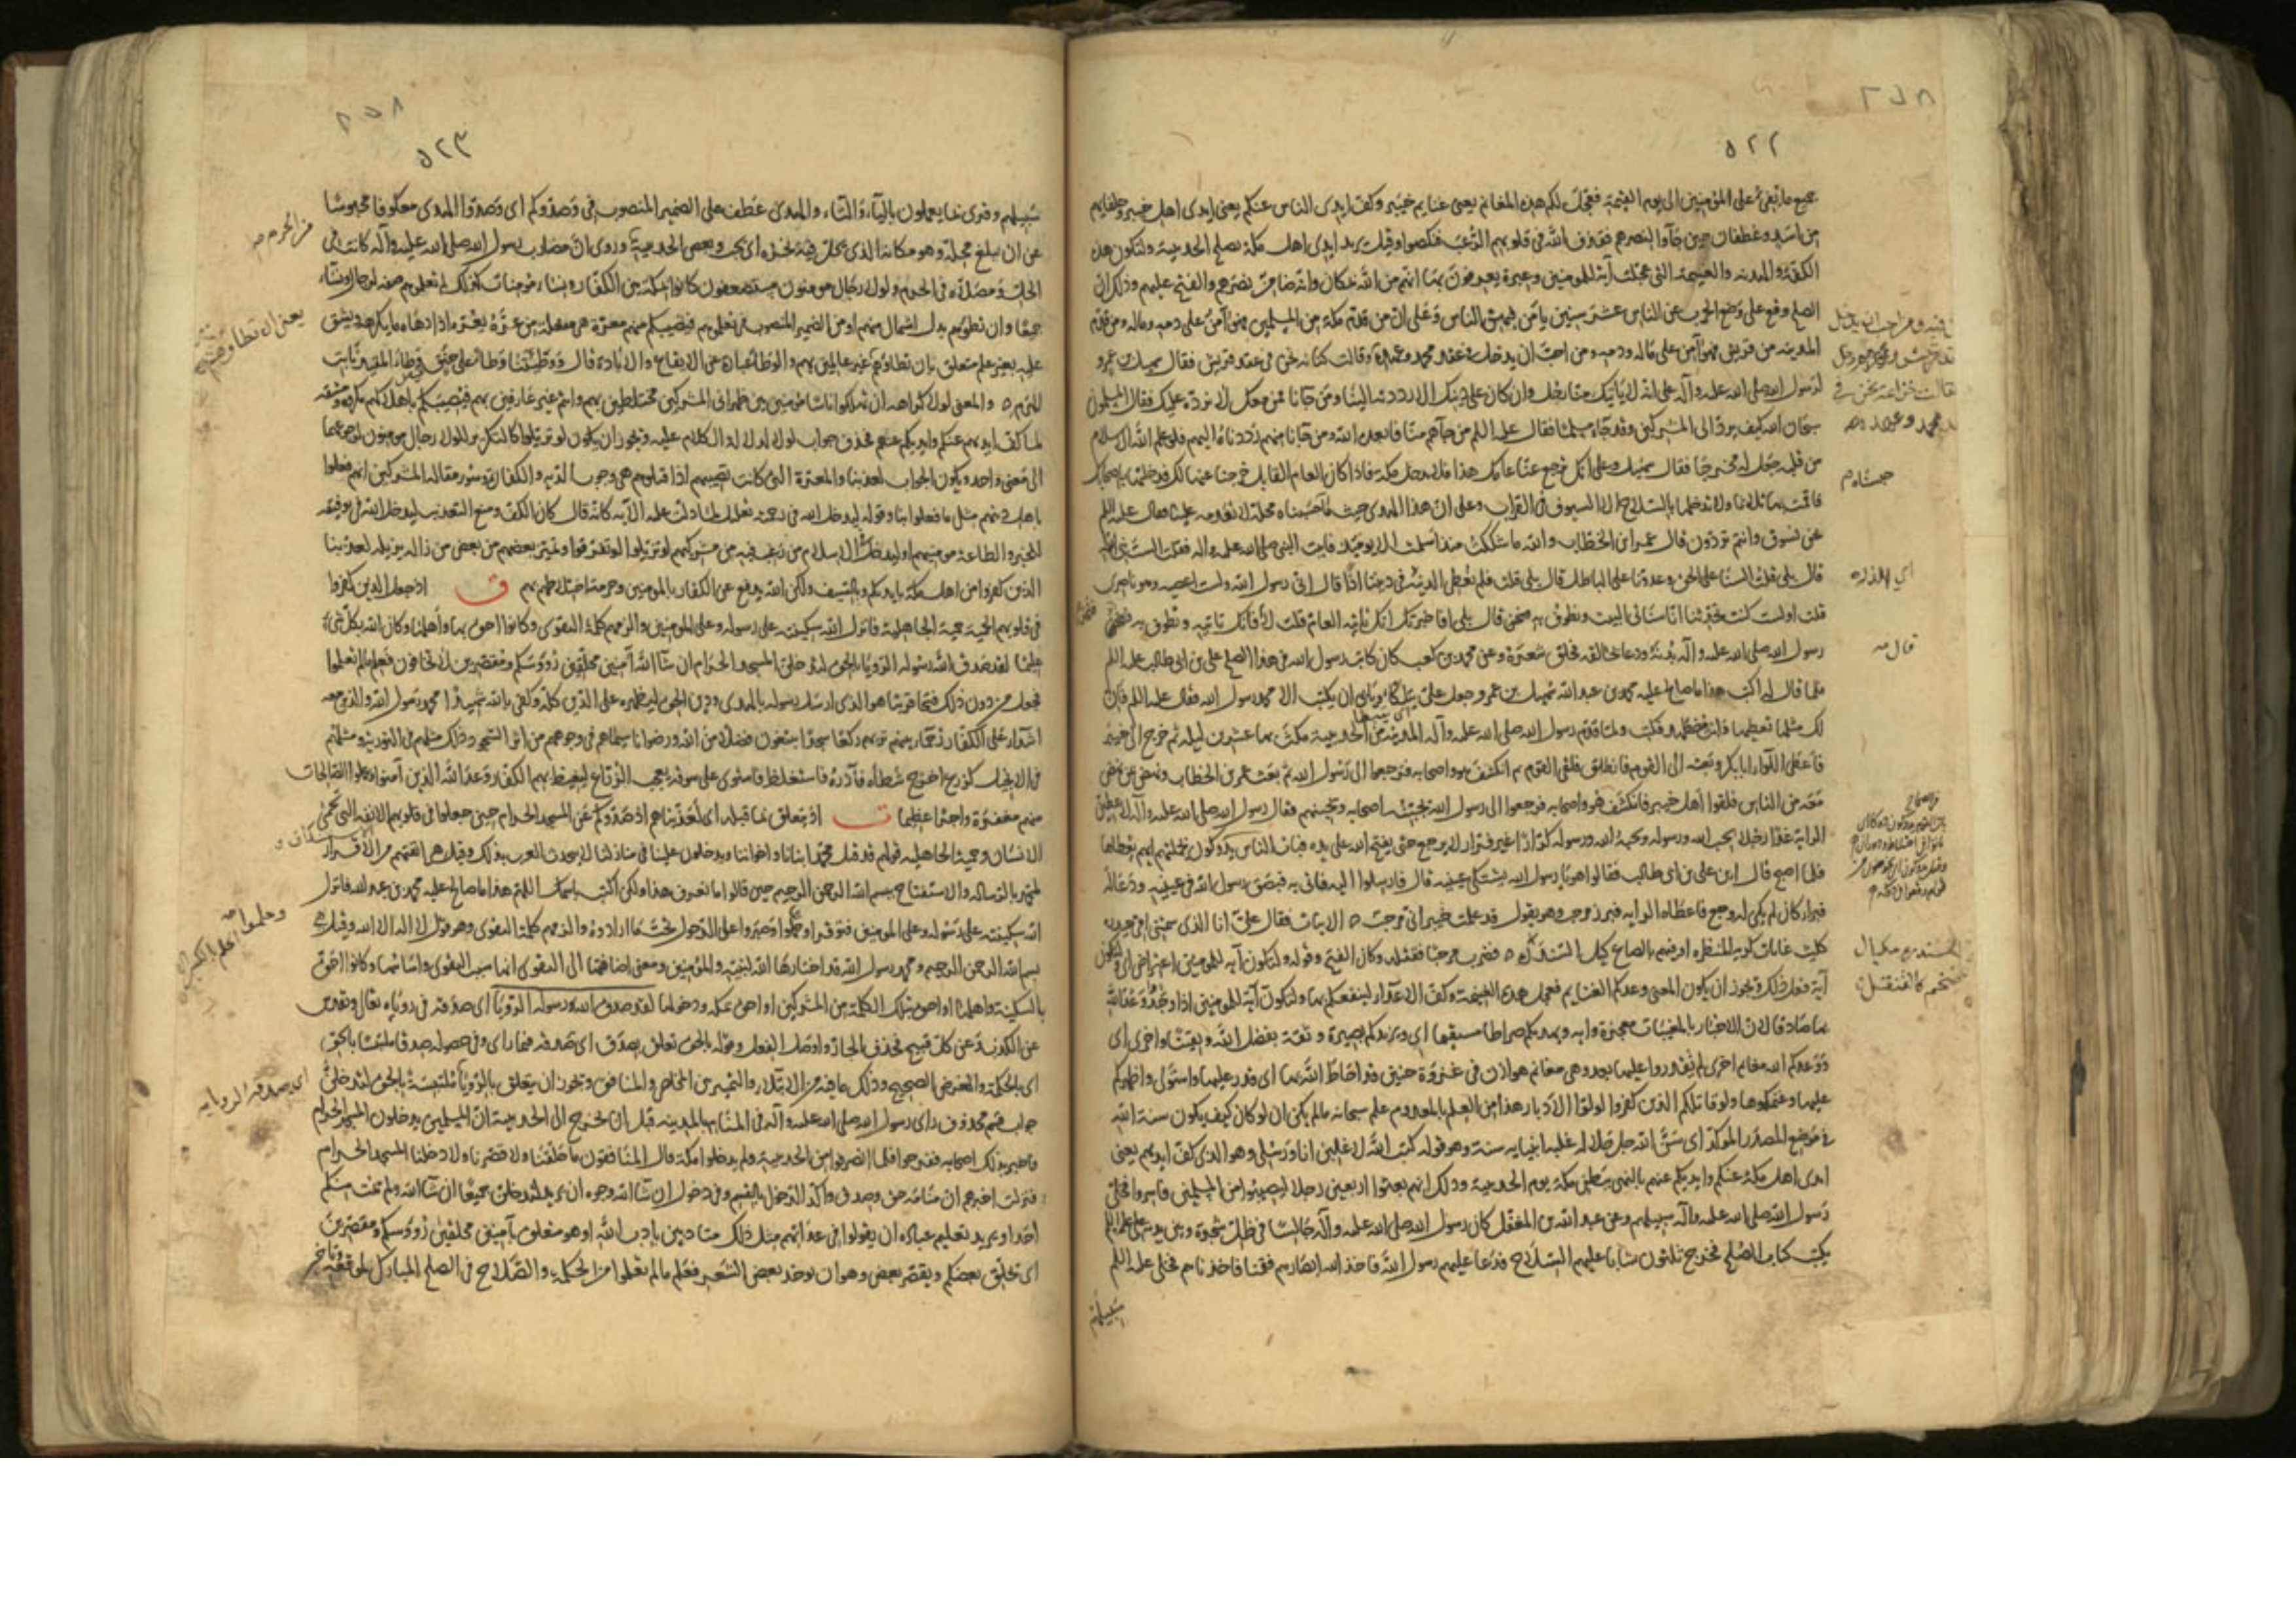 ٥٢٢
جميع ما يفيء على المؤمنين الى يوم القيمة فعجل لكم هذه المغانم يعني غنايم خيبر وكف ايدي الناس عنكم يعني ايدي اهل خيبر وحلفايهم
من اسد وغطفان حين جآوا لنصرهم فقذف الله في قلوبهم الرعب فنكصوا وقيل يريد ايدي اهل مكة بصلح الحديبية ولتكون هذه
الكفة والهدنه والغنيمة التي عجلت آية للمومنين وعبرة يعرفون بها انهم من الله بمكان وانه ضامن نصرهم والفتح عليهم وذلك ان
الصلح وقع على وضع الحرب عن الناس عشر سنين يأمن فيهن الناس وعلى ان من قدم مكة من المسلمين فهو آمن على دمه وماله ومن قدم
المدينه من قريش فهو آمن على ماله ودمه ومن احب ان يدخل في عقد محمد وعهده وقالت كنانه نحن في عقد قريش فقال سهيل بن عمرو
لرسول الله صلى الله عليه وآله على انه لا ياتيك منا رجل وان كان على دينك الا رددته الينا ومن جآنا ممن معك لا نرده عليك فقال المسلمون
سبحان الله كيف يرد الى المشركين وقد جاء مسلما فقال عليه السلم من جآهم منا فابعده الله ومن جآنا منهم رددناه اليهم فلو علم الله الاسلام
من قلبه جعل له مخرجا فقال سهيل وعلى انك ترجع عنا عامك هذا فلا تدخل مكة فاذا كان العام القابل خرجنا عنها لك فدخلتها باصحابك
فاقمت بها ثلاثا ولا تدخلها بالسلاح الا السيوف في القراب وعلى ان هذا الهدي حيث ما حبسناه محله لا تقدمه علينا فقال عليه السلم
نحن نسوق وانتم تردون قال عمر ابن الخطاب والله ما شككت منذ اسلمت الا يوميذ فاتيت النبي صلى الله عليه واله فقلت الست نبي الله
قال بلى قلت السنا على الحق وعدونا على الباطل قال بلى قلت فلم نعطي الدنية في ديننا اذا قال اني رسول الله ولست اعصيه وهو ناصري
قلت اولست كنت تحدثنا انا سناتي البيت ونطوف به قال بلى افاخبرتك انك تاتيه العام قلت لا قال فانك تاتيه وتطوف به فنحر
رسول الله صلى الله عليه وآله بدنه ودعا حالقه فحلق شعره وعن محمد بن كعب كان كاتب رسول الله في هذا الصلح علي بن ابي طالب عليه السلم
فلما قال له اكتب هذا ما صالح عليه محمد بن عبد الله سهيل بن عمرو جعل علي يتلكأ ويابى ان يكتب الا محمد رسول الله فقال عليه السلم فان
لك مثلها تعطيها وانت مضطهد فكتب ولما قدم رسول الله صلى الله عليه وآله المدينه من الحديبية مكث بها عشرين ليلة ثم خرج الى خيبر
فاعطى اللواء ابا بكر وبعثه الى القوم فانطلق فلقي القوم ثم انكشف هو واصحابه فرجعوا الى رسول الله ثم بعث عمر بن الخطاب ونهض من نهض
معه من الناس فلقوا اهل خيبر فانكشف هو واصحابه فرجعوا الى رسول الله يجبنه اصحابه ويجبنهم فقال رسول الله صلى الله عليه وآله لاعطين
الراية غدا رجلا يحب الله ورسوله ويحبه الله ورسوله كرارا غير فرار لا يرجع حتى يفتح الله على يده فبات الناس يدوكون بجملتهم ايهم يعطاها
فلما اصبح قال اين علي بن ابي طالب فقالوا هو يا رسول الله يشتكي عينيه قال فارسلوا اليه فاتي به فبصق رسول الله في عينيه ودعا له
فبرأ كان لم يكن به وجع فاعطاه الرايه فبرز مرحب وهو يقول قد علمت خيبر اني مرحب ٥ الابيات فقال علي انا الذي سمتني امي حيدره
كليث غابات كريه المنظره اوفيهم بالصاع كيل السندره ٥ فضرب مرحبا فقتله وكان الفتح وقوله ولتكون آية للمومنين اعتراض اي ولتكون
آية فعل ذلك ويجوز ان يكون المعنى وعدكم الغنايم فعجل هذه الغنيمة وكف الاعدآء لينفعكم بها ولتكون آية للمومنين اذا وجدوا وعد الله
بها صادقا لان الاخبار بالمغيبات معجزة وايه ويهديكم صراطا مستقيما اي ويزيدكم بصيرة وثقة بفضل الله ويقينا واخرى اي
ووعدكم الله مغانم اخرى لم تقدروا عليها بعد وهي مغانم هوازن في غزوة حنين قد احاط الله بها اي قدر عليها واستولى واظهركم
عليها وغنمكوها ولو قاتلكم الذين كفروا لولوا الادبار هذا من العلم بالمعدوم علم سبحانه ما لم يكن ان لو كان كيف يكون سنة الله
في موضع المصدر الموكد اي سن الله جل جلاله غلبة انبيايه سنة وهو قوله كتب الله لاغلبن انا ورسلي وهو الذي كف ايديهم يعني
ايدي اهل مكة عنكم وايديكم عنهم بالنهي ببطن مكة يوم الحديبية وذلك انهم بعثوا اربعين رجلا ليصيبوا من المسلمين فاسروا فخلى
رسول الله صلى الله عليه وآله سبيلهم وعن عبد الله بن المغفل كان رسول الله صلى الله عليه وآله جالسا في ظل شجرة وبين يديه علي عليه السلم
يكتب كتاب الصلح فخرج ثلثون شابا عليهم السلاح فدعا عليهم رسول الله فاخذ الله ابصارهم فقمنا فاخذناهم فخلى عليه السلم
سبيلهم
قال صه
٥٢٣
سبيلهم وقرئ بما يعملون باليآء والتاء والهدي عطف على الضمير المنصوب في وصدوكم اي وصدوا الهدي معكوفا محبوسا
عن ان يبلغ محله وهو مكانه الذي يحل فيه نحره اي يجب وبعض الحديبية وروي ان مضارب رسول الله صلى الله عليه وآله كانت في
الحل ومصلاه في الحرم ولولا رجال مومنون مستضعفون كانوا بمكة بين الكفار ونساء مومنات كذلك لم تعلموهم صفة لرجال ونساء
جميعا وان تطؤهم بدل اشتمال منهم او من الضمير المنصوب في تعلموهم فتصيبكم منهم معرة هي مفعلة من عره يعره اذا دهاه ما يكرهه ويشق
عليه بغير علم متعلق بان تطؤهم غير عالمين بهم والوطأ عبارة عن الايقاع والابادة قال ووطئتنا وطأ على حنق وطأ المقيد نابت
الهرم ٥ والمعنى لولا كراهة ان تهلكوا ناسا مومنين بين ظهراني المشركين مختلطين بهم وانتم غير عارفين بهم فيصيبكم باهلاكهم مكروه ومشقه
لما كف ايديهم عنكم وايديكم عنهم فحذف جواب لولا لدلالة الكلام عليه ويجوز ان يكون لو تزيلوا كالتكرير للولا رجال مومنون لمرجعهما
الى معنى واحد ويكون الجواب لعذبنا والمعرة التي كانت تصيبهم اذا قتلوهم هي وجوب الديه والكفارة وسوء مقالة المشركين انهم فعلوا
باهل دينهم مثل ما فعلوا بنا وقوله ليدخل الله في رحمته تعليل لما دلت عليه الآيه كانه قال كان الكف ومنع التعذيب ليدخل الله في توفيقه
للخير والطاعة مومنيهم او ليدخل في الاسلام من رغب فيه من مشركيهم لو تزيلوا لو تفرقوا وتميز بعضهم من بعض من زاله يزيله لعذبنا
الذين كفروا من اهل مكة بايديكم وبالسيف ولكن الله يدفع عن الكفار بالمومنين وحرمة اختلاطهم بهم ق اذ جعل الذين كفروا
في قلوبهم الحمية حمية الجاهلية فانزل الله سكينته على رسوله وعلى المومنين والزمهم كلمة التقوى وكانوا احق بها واهلها وكان الله بكل شيء
عليما لقد صدق الله رسوله الرويا بالحق لتدخلن المسجد الحرام ان شآ الله آمنين محلقين رؤوسكم ومقصرين لا تخافون فعلم ما لم تعلموا
فجعل من دون ذلك فتحا قريبا هو الذي ارسل رسوله بالهدى ودين الحق ليظهره على الدين كله وكفى بالله شهيدا محمد رسول الله والذين معه
اشداء على الكفار رحمآء بينهم تريهم ركعا سجدا يبتغون فضلا من الله ورضوانا سيماهم في وجوههم من اثر السجود ذلك مثلهم في التورية ومثلهم
في الانجيل كزرع اخرج شطأه فآزره فاستغلظ فاستوى على سوقه يعجب الزراع ليغيظ بهم الكفار وعد الله الذين آمنوا وعملوا الصالحات
منهم مغفرة واجرا عظيما ت اذ يتعلق بما قبله اي لعذبناهم اذ صدوكم عن المسجد الحرام حين جعلوا في قلوبهم الانفة التي تحمي
الانسان وحمية الجاهلية قولهم قد قتل محمد ابنانا واخواننا ويدخلون علينا في منازلنا لا تحدث العرب بذلك وقيل هي انفتهم من الاقرار
لمحمد بالرسالة والاستفتاح ببسم الله الرحمن الرحيم حين قالوا ما نعرف هذا ولكن اكتب باسمك اللهم هذا ما صالح عليه محمد بن عبد الله فانزل
الله سكينته على رسوله وعلى المومنين فتوقروا وحلموا وصبروا على الدخول تحت ما ارادوه والزمهم كلمة التقوى وهو قول لا اله الا الله وقيل هي
بسم الله الرحمن الرحيم ومحمد رسول الله قد اختارها الله لنبيه والمؤمنين ومعنى اضافتها الى التقوى انها سبب التقوى واساسها وكانوا احق
بالسكينة واهلها او احق بتلك الكلمة من المشركين او احق بمكة ودخولها لقد صدق الله رسوله الرويا اي صدقه في روياه تعالى وتقدس
عن الكذب وعن كل قبيح فحذف الجار واوصل الفعل وقوله بالحق تعلق بصدق اي صدقه فيما راى وفي حصوله صدقا ملتبسا بالحق
اي بالحكمة والغرض الصحيح وذلك ما فيه من الابتلاء والتمييز بين المخلص والمنافق ويجوز ان يتعلق بالرؤيا ملتبسة بالحق لتدخلن
جواب قسم محذوف راى رسول الله صلى الله عليه وآله في المنام بالمدينه قبل ان يخرج الى الحديبية ان المسلمين يدخلون المسجد الحرام
فاخبر بذلك اصحابه ففرحوا فلما انصرفوا من الحديبيه ولم يدخلوا مكة قال المنافقون ما حلقنا ولا قصرنا ولا دخلنا المسجد الحرام
فنزلت اخبرهم ان منامه حق وصدق واكد الدخول بالقسم وفي دخول ان شآ الله وجوه ان يريد لتدخلن جميعا ان شآ الله ولم يمت منكم
احد او يريد تعليم عباده ان يقولوا في عداتهم مثل ذلك متادبين بادب الله او هو متعلق بآمنين محلقين رؤوسكم ومقصرين
اي تحلق بعضكم ويقصر بعض وهو ان يوخذ بعض الشعر فعلم ما لم تعلموا من الحكمة والصلاح في الصلح المبارك لموقعه وتاخير
من الحرم صه